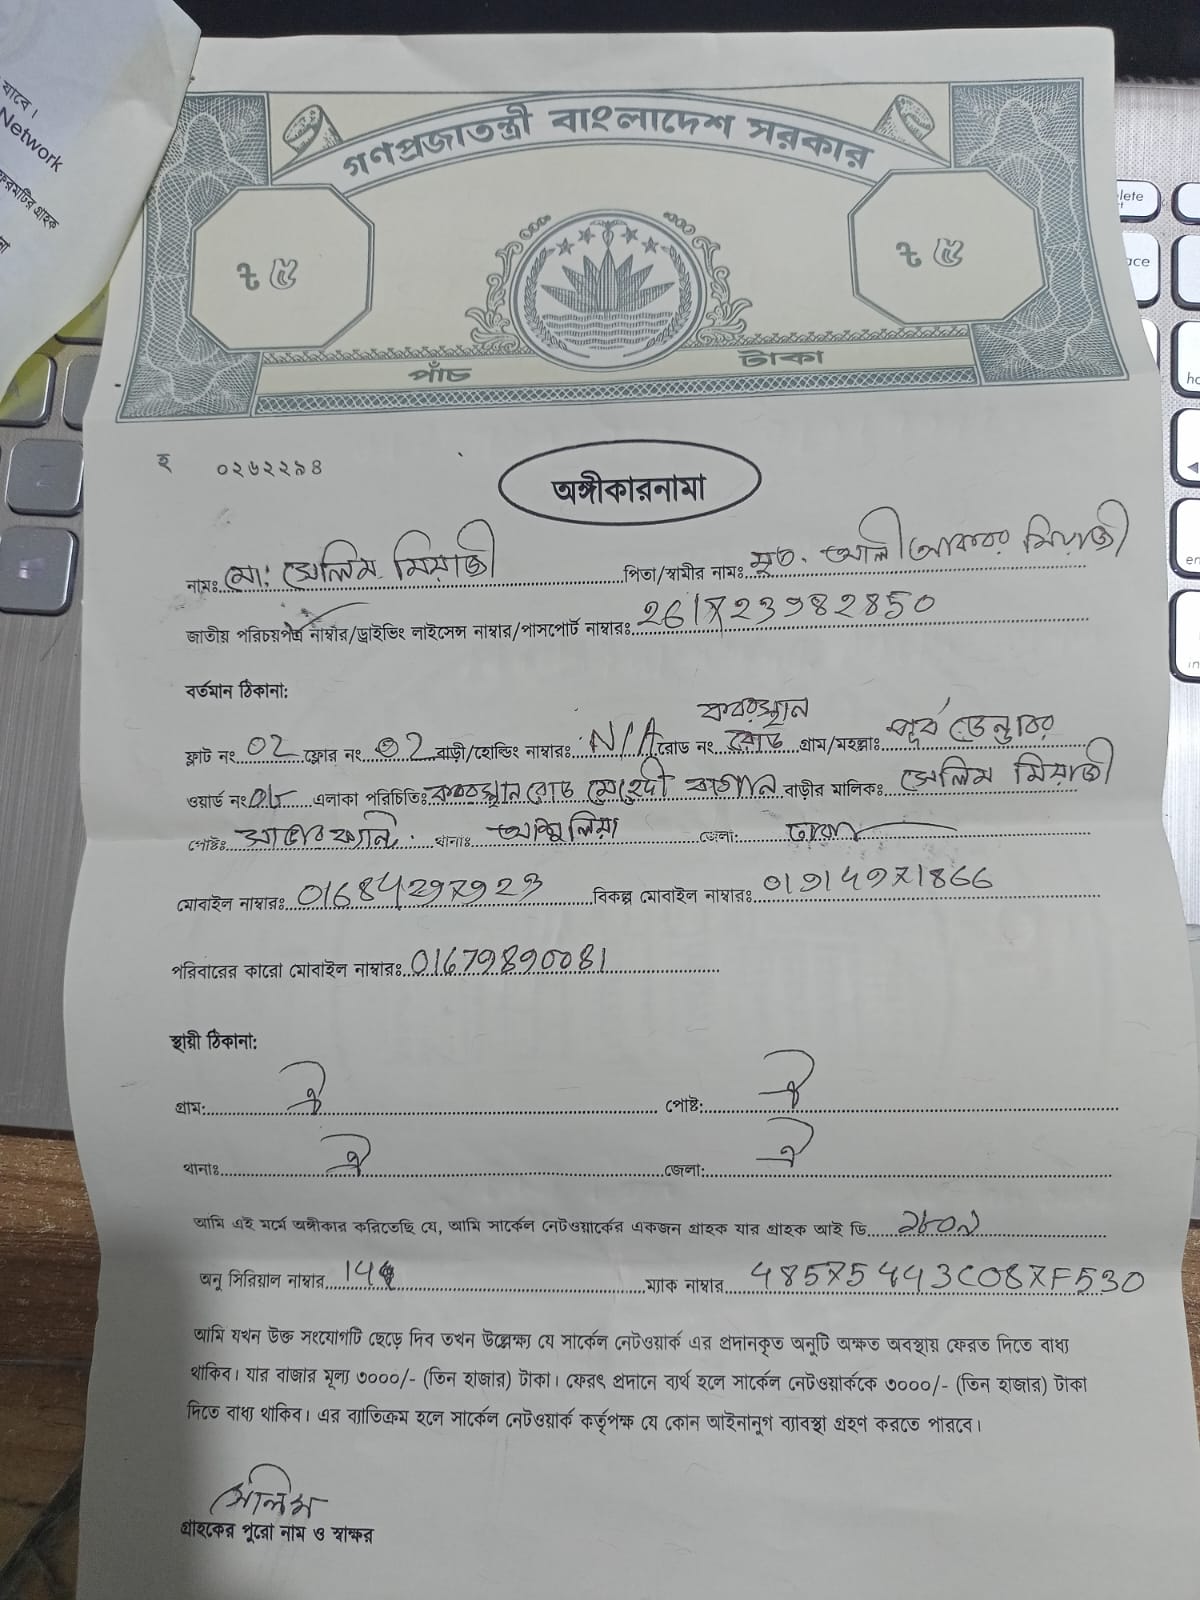 যাবে।
Network
ফরমটির গ্রাহক
গণপ্রজাতন্ত্রী বাংলাদেশ সরকার
৳ ৫ ৳ ৫
পাঁচ টাকা
হ ০২৬২২৯৪
অঙ্গীকারনামা
নামঃ মো: সেলিম মিয়াজী পিতা/স্বামীর নামঃ মৃত. আলী আকবর মিয়াজী
জাতীয় পরিচয়পত্র নাম্বার/ড্রাইভিং লাইসেন্স নাম্বার/পাসপোর্ট নাম্বারঃ 261723982850
বর্তমান ঠিকানা:
ফ্লাট নং 02 ফ্লোর নং 02 বাড়ী/হোল্ডিং নাম্বারঃ N/A রোড নং কবরস্থান রোড গ্রাম/মহল্লাঃ পূর্ব ডেন্ডাবর
ওয়ার্ড নং এলাকা পরিচিতিঃ কবরস্থান রোড মেহেদী বাগান বাড়ীর মালিকঃ সেলিম মিয়াজী
পোষ্টঃ থানাঃ আশুলিয়া জেলা: ঢাকা
মোবাইল নাম্বারঃ 01684297923 বিকল্প মোবাইল নাম্বারঃ 01914971866
পরিবারের কারো মোবাইল নাম্বারঃ 01679890081
স্থায়ী ঠিকানা:
গ্রাম: ঐ পোষ্ট: ঐ
থানাঃ ঐ জেলা: ঐ
আমি এই মর্মে অঙ্গীকার করিতেছি যে, আমি সার্কেল নেটওয়ার্কের একজন গ্রাহক যার গ্রাহক আই ডি
অনু সিরিয়াল নাম্বার ম্যাক নাম্বার 48575443C087F530
আমি যখন উক্ত সংযোগটি ছেড়ে দিব তখন উল্লেক্ষ্য যে সার্কেল নেটওয়ার্ক এর প্রদানকৃত অনুটি অক্ষত অবস্থায় ফেরত দিতে বাধ্য
থাকিব। যার বাজার মূল্য ৩০০০/- (তিন হাজার) টাকা। ফেরৎ প্রদানে ব্যর্থ হলে সার্কেল নেটওয়ার্ককে ৩০০০/- (তিন হাজার) টাকা
দিতে বাধ্য থাকিব। এর ব্যাতিক্রম হলে সার্কেল নেটওয়ার্ক কর্তৃপক্ষ যে কোন আইনানুগ ব্যাবস্থা গ্রহণ করতে পারবে।
সেলিম
গ্রাহকের পুরো নাম ও স্বাক্ষর